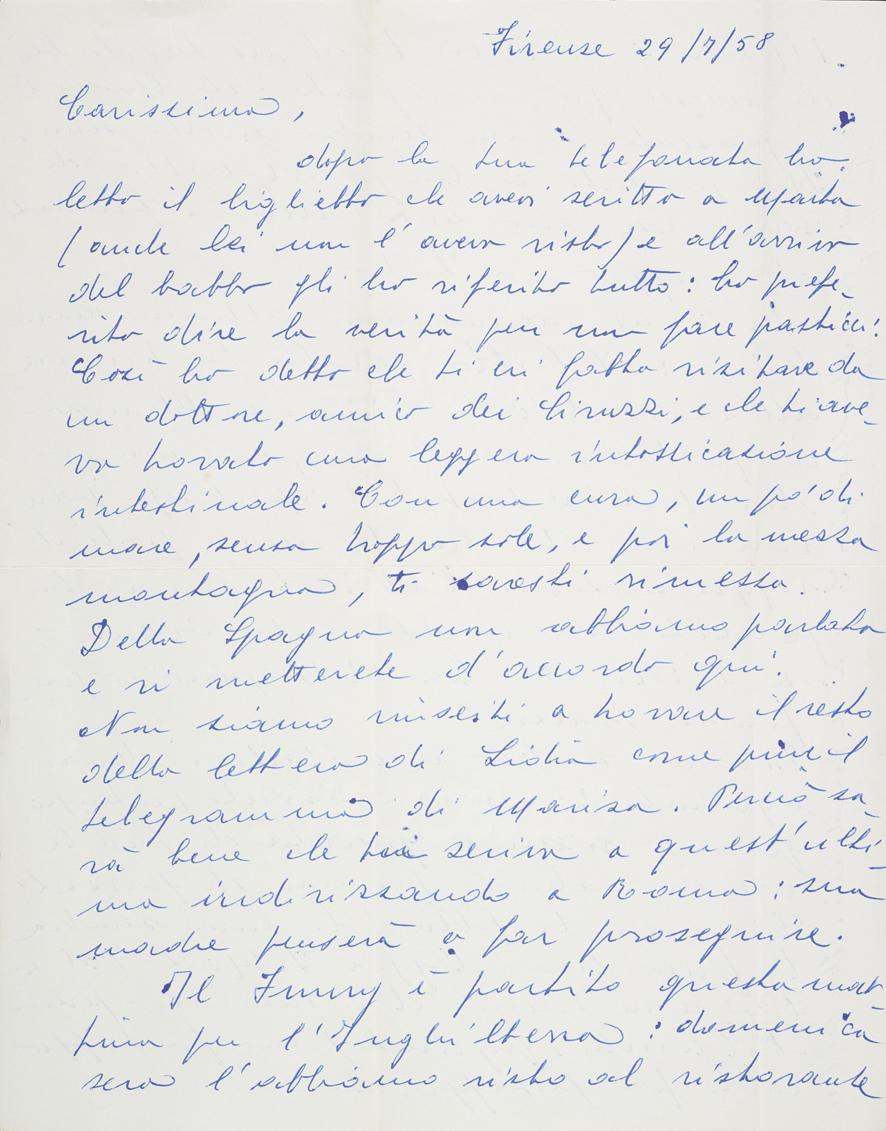 Firenze 29/7/58
Carissima,
dopo la tua telefonata ho
letto il biglietto che avevi scritto a Marta
(anche lei non l'aveva visto) e all'arrivo
del babbo gli ho riferito tutto: ho prefe-
rito dire la verità per non fare pasticci!
Così ho detto che ti eri fatta visitare da
un dottore, amico dei, e che ti ave-
va trovato una leggera intossicazione
intestinale. Con una cura, un po' di
mare, senza troppo sole, e poi la mezza
montagna, ti saresti rimessa.
Della Spagna non abbiamo parlato
e vi metterete d'accordo qui.
Non siamo riusciti a trovare il resto
della lettera di Lidia come pure il
telegramma di Marisa. Perciò sa-
rà bene che tu scriva a quest'ulti-
ma indirizzando a Roma: sua
madre penserà a far proseguire.
Il è partito questa mat-
tina per l'Inghilterra: domenica
sera l'abbiamo visto al ristorante